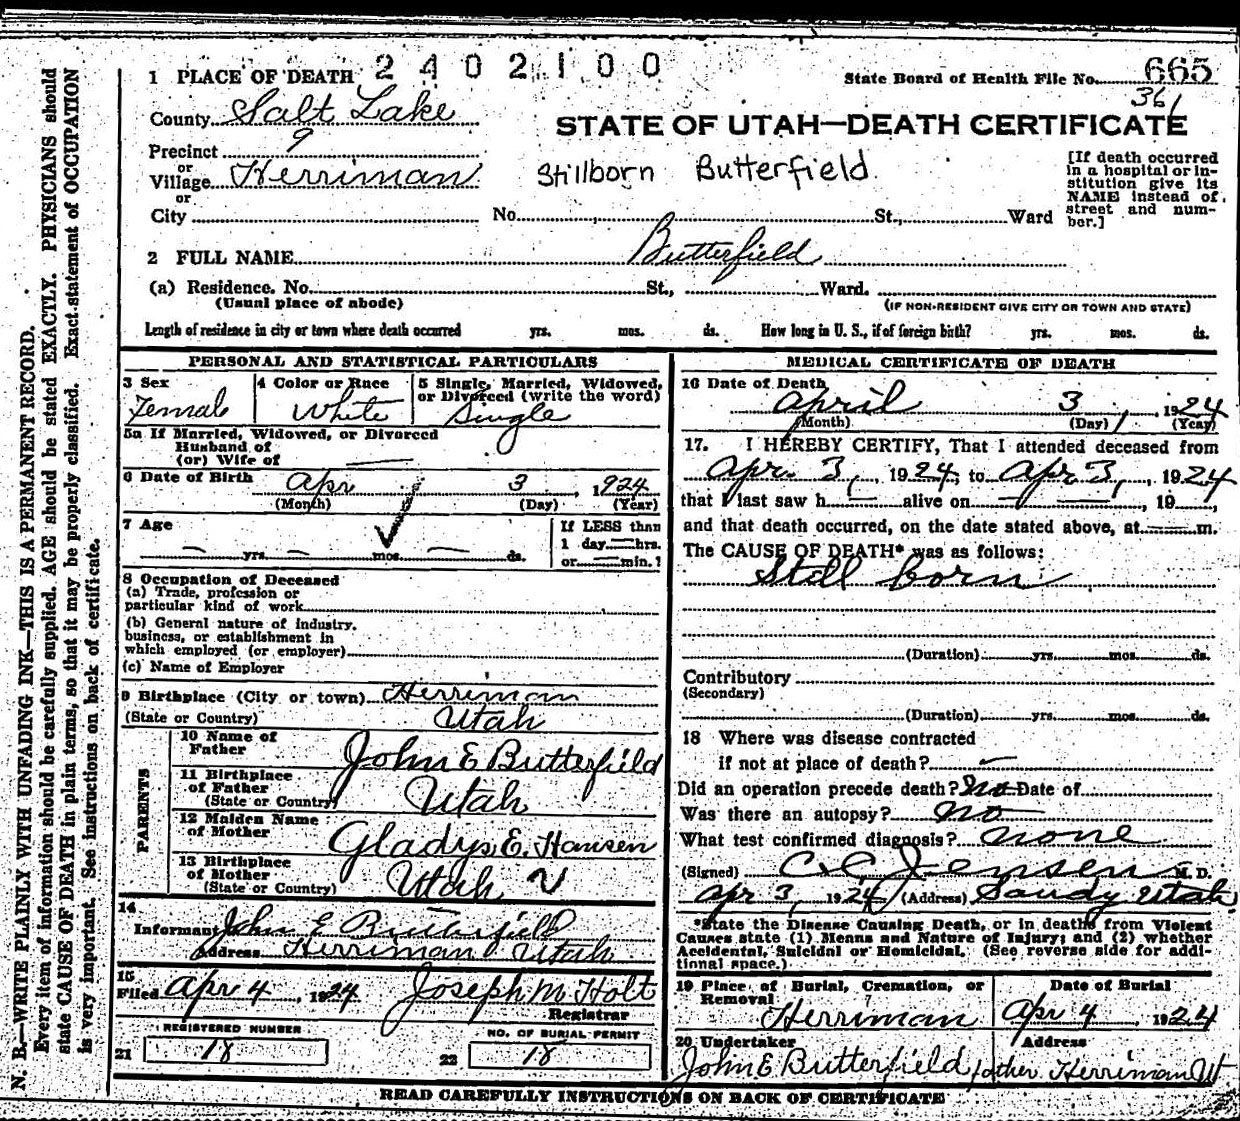 1 PLACE OF DEATH 2 4 0 2 1 0 0
State Board of Health File No. 665
361
County Salt Lake
STATE OF UTAH—DEATH CERTIFICATE
Precinct 9
or
Village Herriman
Stillborn Butterfield
or
City No. St., Ward
[If death occurred
in a hospital or in-
stitution give its
NAME instead of
street and num-
ber.]
2 FULL NAME Butterfield
(a) Residence. No. St., Ward.
(Usual place of abode) (IF NON-RESIDENT GIVE CITY OR TOWN AND STATE)
Length of residence in city or town where death occurred yrs. mos. ds. How long in U. S., if of foreign birth? yrs. mos. ds.
PERSONAL AND STATISTICAL PARTICULARS
3 Sex 4 Color or Race 5 Single, Married, Widowed,
or Divorced (write the word)
Female White Single
5a If Married, Widowed, or Divorced
Husband of
(or) Wife of —
6 Date of Birth Apr 3, 1924
(Month) (Day) (Year)
7 Age If LESS than
— yrs. — mos. — ds. 1 day — hrs.
or — min.?
8 Occupation of Deceased
(a) Trade, profession or
particular kind of work
(b) General nature of industry,
business, or establishment in
which employed (or employer)
(c) Name of Employer
9 Birthplace (City or town) Herriman
(State or Country) Utah
PARENTS
10 Name of
Father John E Butterfield
11 Birthplace
of Father
(State or Country) Utah
12 Maiden Name
of Mother Gladys E. Hansen
13 Birthplace
of Mother
(State or Country) Utah
14
Informant John E Butterfield
Address Herriman Utah
15
Filed Apr 4, 1924 Joseph M Holt
Registrar
REGISTERED NUMBER NO. OF BURIAL PERMIT
21 18 22 18
MEDICAL CERTIFICATE OF DEATH
16 Date of Death
April 3, 1924
(Month) (Day) (Year)
17. I HEREBY CERTIFY, That I attended deceased from
Apr. 3, 1924, to Apr 3, 1924
that I last saw h — alive on — —, 19
and that death occurred, on the date stated above, at — m.
The CAUSE OF DEATH* was as follows:
Still born
(Duration) yrs. mos. ds.
Contributory
(Secondary)
(Duration) yrs. mos. ds.
18 Where was disease contracted
if not at place of death? —
Did an operation precede death? No Date of
Was there an autopsy? no
What test confirmed diagnosis? none
(Signed) C C Jensen M. D.
Apr 3, 1924 (Address) Sandy Utah
*State the Disease Causing Death, or in deaths from Violent
Causes state (1) Means and Nature of Injury; and (2) whether
Accidental, Suicidal or Homicidal. (See reverse side for addi-
tional space.)
19 Place of Burial, Cremation, or
Removal
Herriman
Date of Burial
Apr 4, 1924
20 Undertaker Address
John E Butterfield father Herriman Ut
READ CAREFULLY INSTRUCTIONS ON BACK OF CERTIFICATE
N. B.—WRITE PLAINLY WITH UNFADING INK—THIS IS A PERMANENT RECORD.
Every item of information should be carefully supplied. AGE should be stated EXACTLY. PHYSICIANS should
state CAUSE OF DEATH in plain terms, so that it may be properly classified. Exact statement of OCCUPATION
is very important. See instructions on back of certificate.